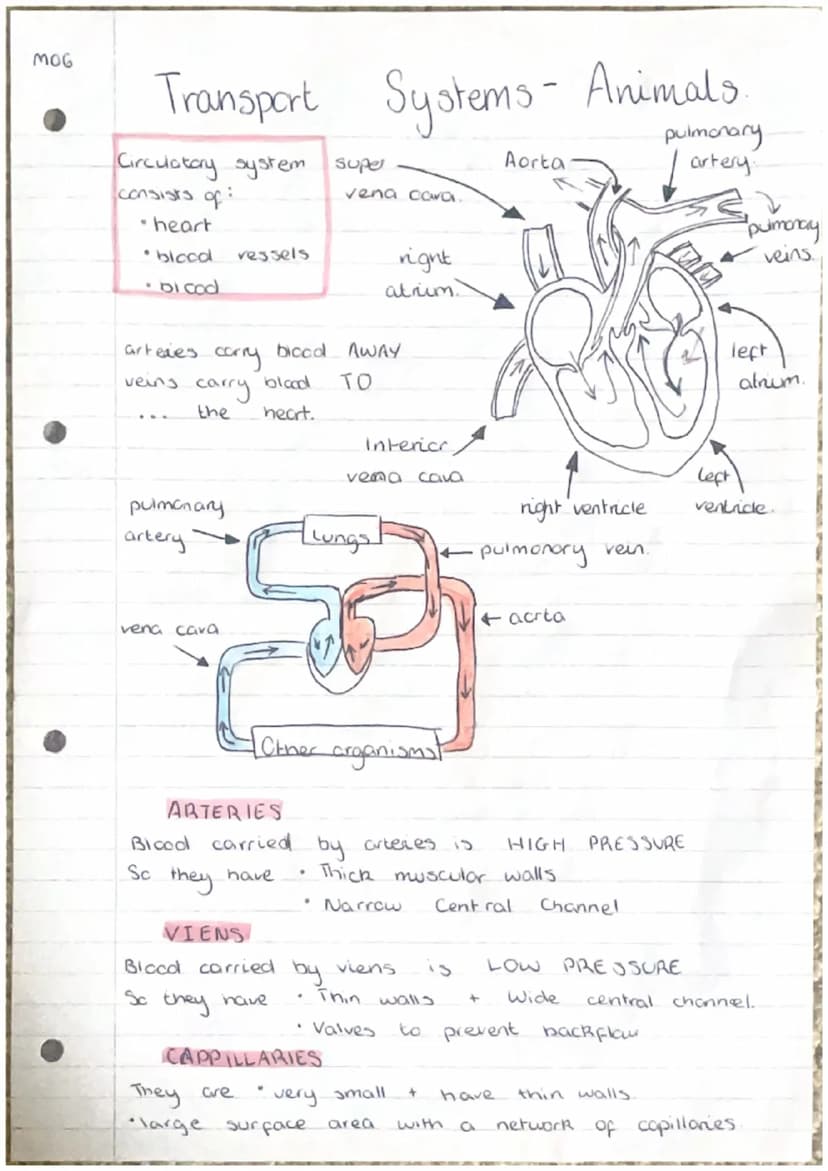 MO6
Transport Systems - Animals.
Circulatory system
consists of:
• heart
• blood vessels
• blood
super
vena cava.
Aorta
pulmonary
artery.
pulmonary
veins.
right
atrium.
left
atrium.
arteies carry blood AWAY
veins carry blood TO
... the heart.
Interior
vema cava
right ventricle
left
ventricle.
pulmonary
artery
Lungs
pulmonory vein.
vena cava
aorta
Other organisms
ARTERIES
Blood carried by arteries is HIGH PRESSURE
So they have • Thick muscular walls
• Narrow Central Channel
VIENS
Blood carried by viens is LOW PRESSURE
So they have • Thin walls + Wide central channel.
• Valves to prevent backflow
CAPPILLARIES
They are • very small + have thin walls.
• large surface area with a network of capillaries.